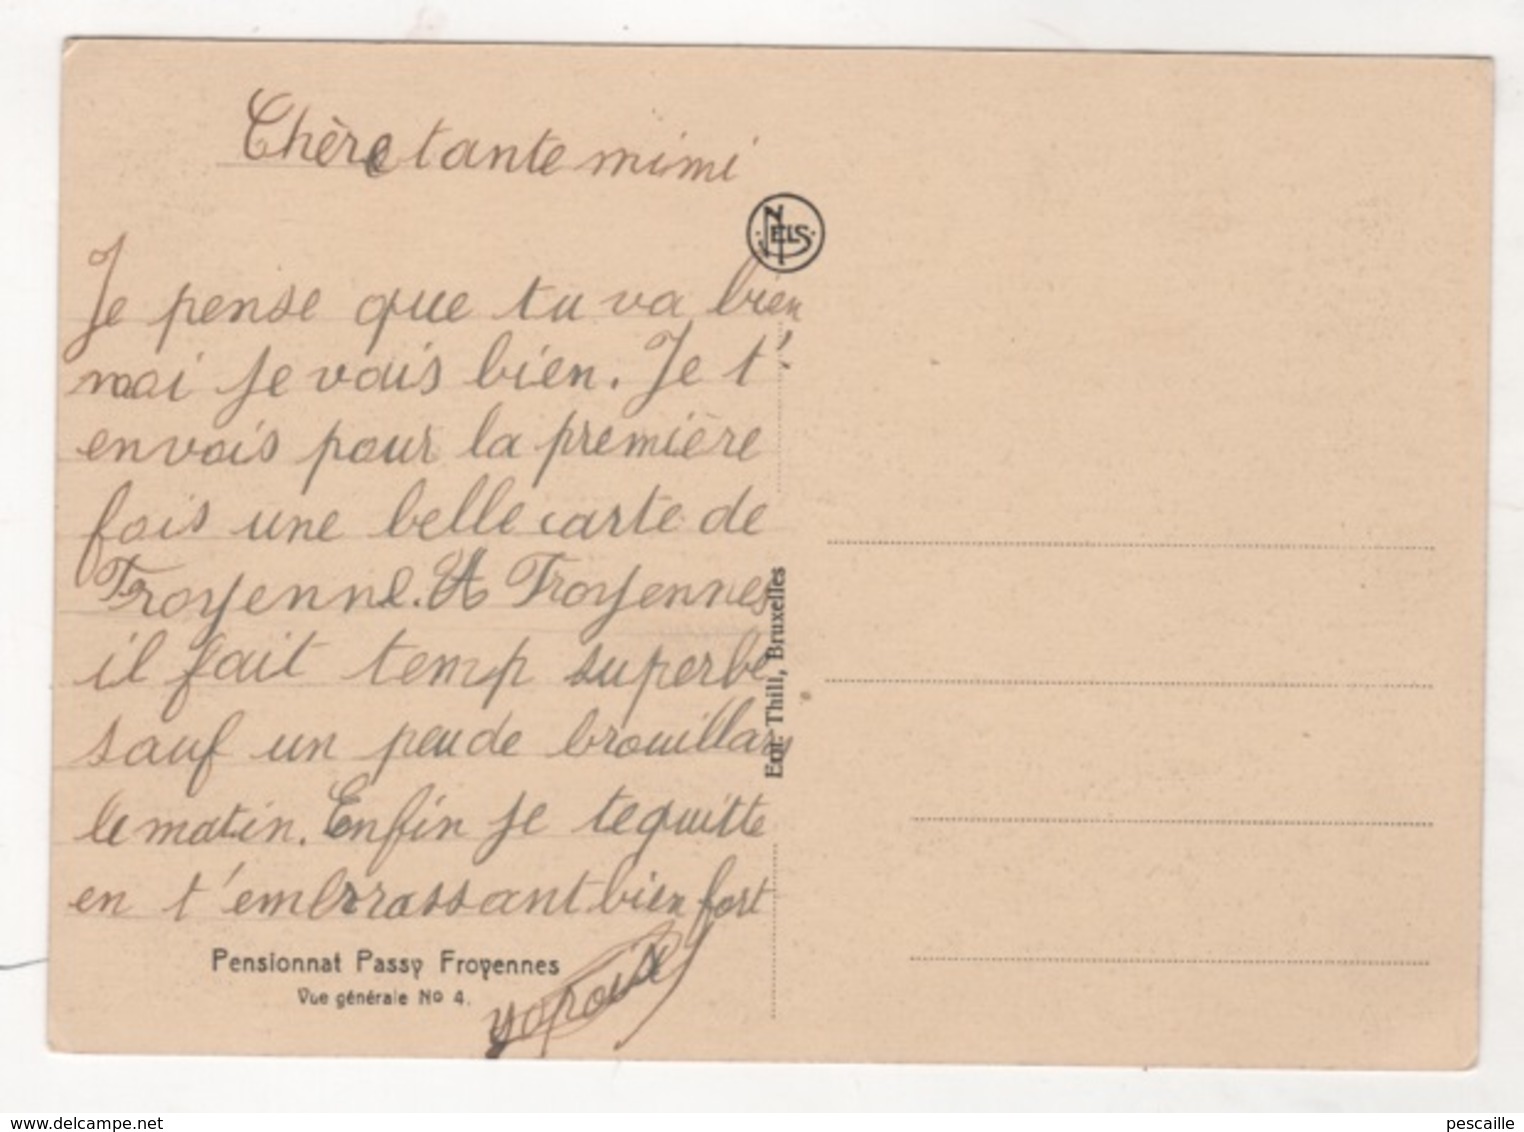 Chère tante mimi
NELS
Je pense que tu va bien
moi je vais bien. Je t'
envois pour la première
fois une belle carte de
Froyenne. A Froyennes
il fait temp superbe
sauf un peu de brouillard
le matin. Enfin je te quitte
en t'embrrassant bien fort
Pensionnat Passy Froyennes
Vue générale No 4.
Ed. Thill, Bruxelles
www.delcampe.net
pescaille